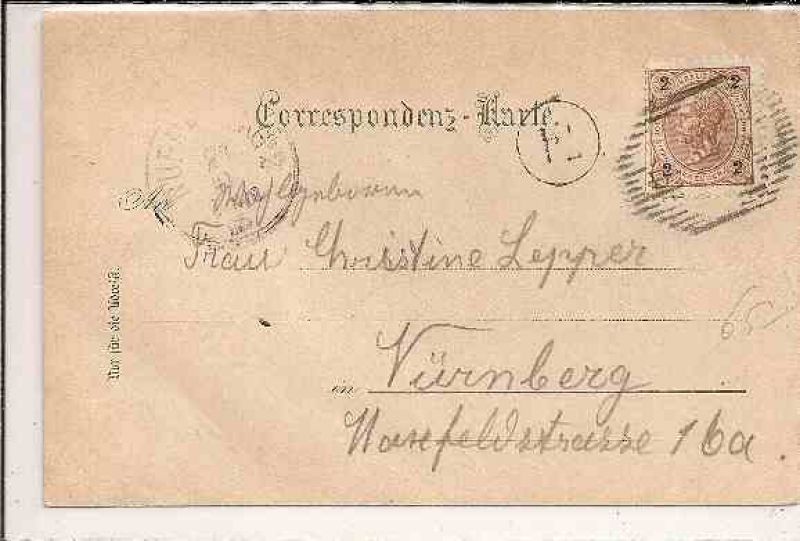 Correspondenz-Karte.
2 2
2 2
An
Wohlgeborenen
Frau Christine Lepper
65
in Nürnberg
Maxfeldstrasse 16a.
Nur für die Adresse.